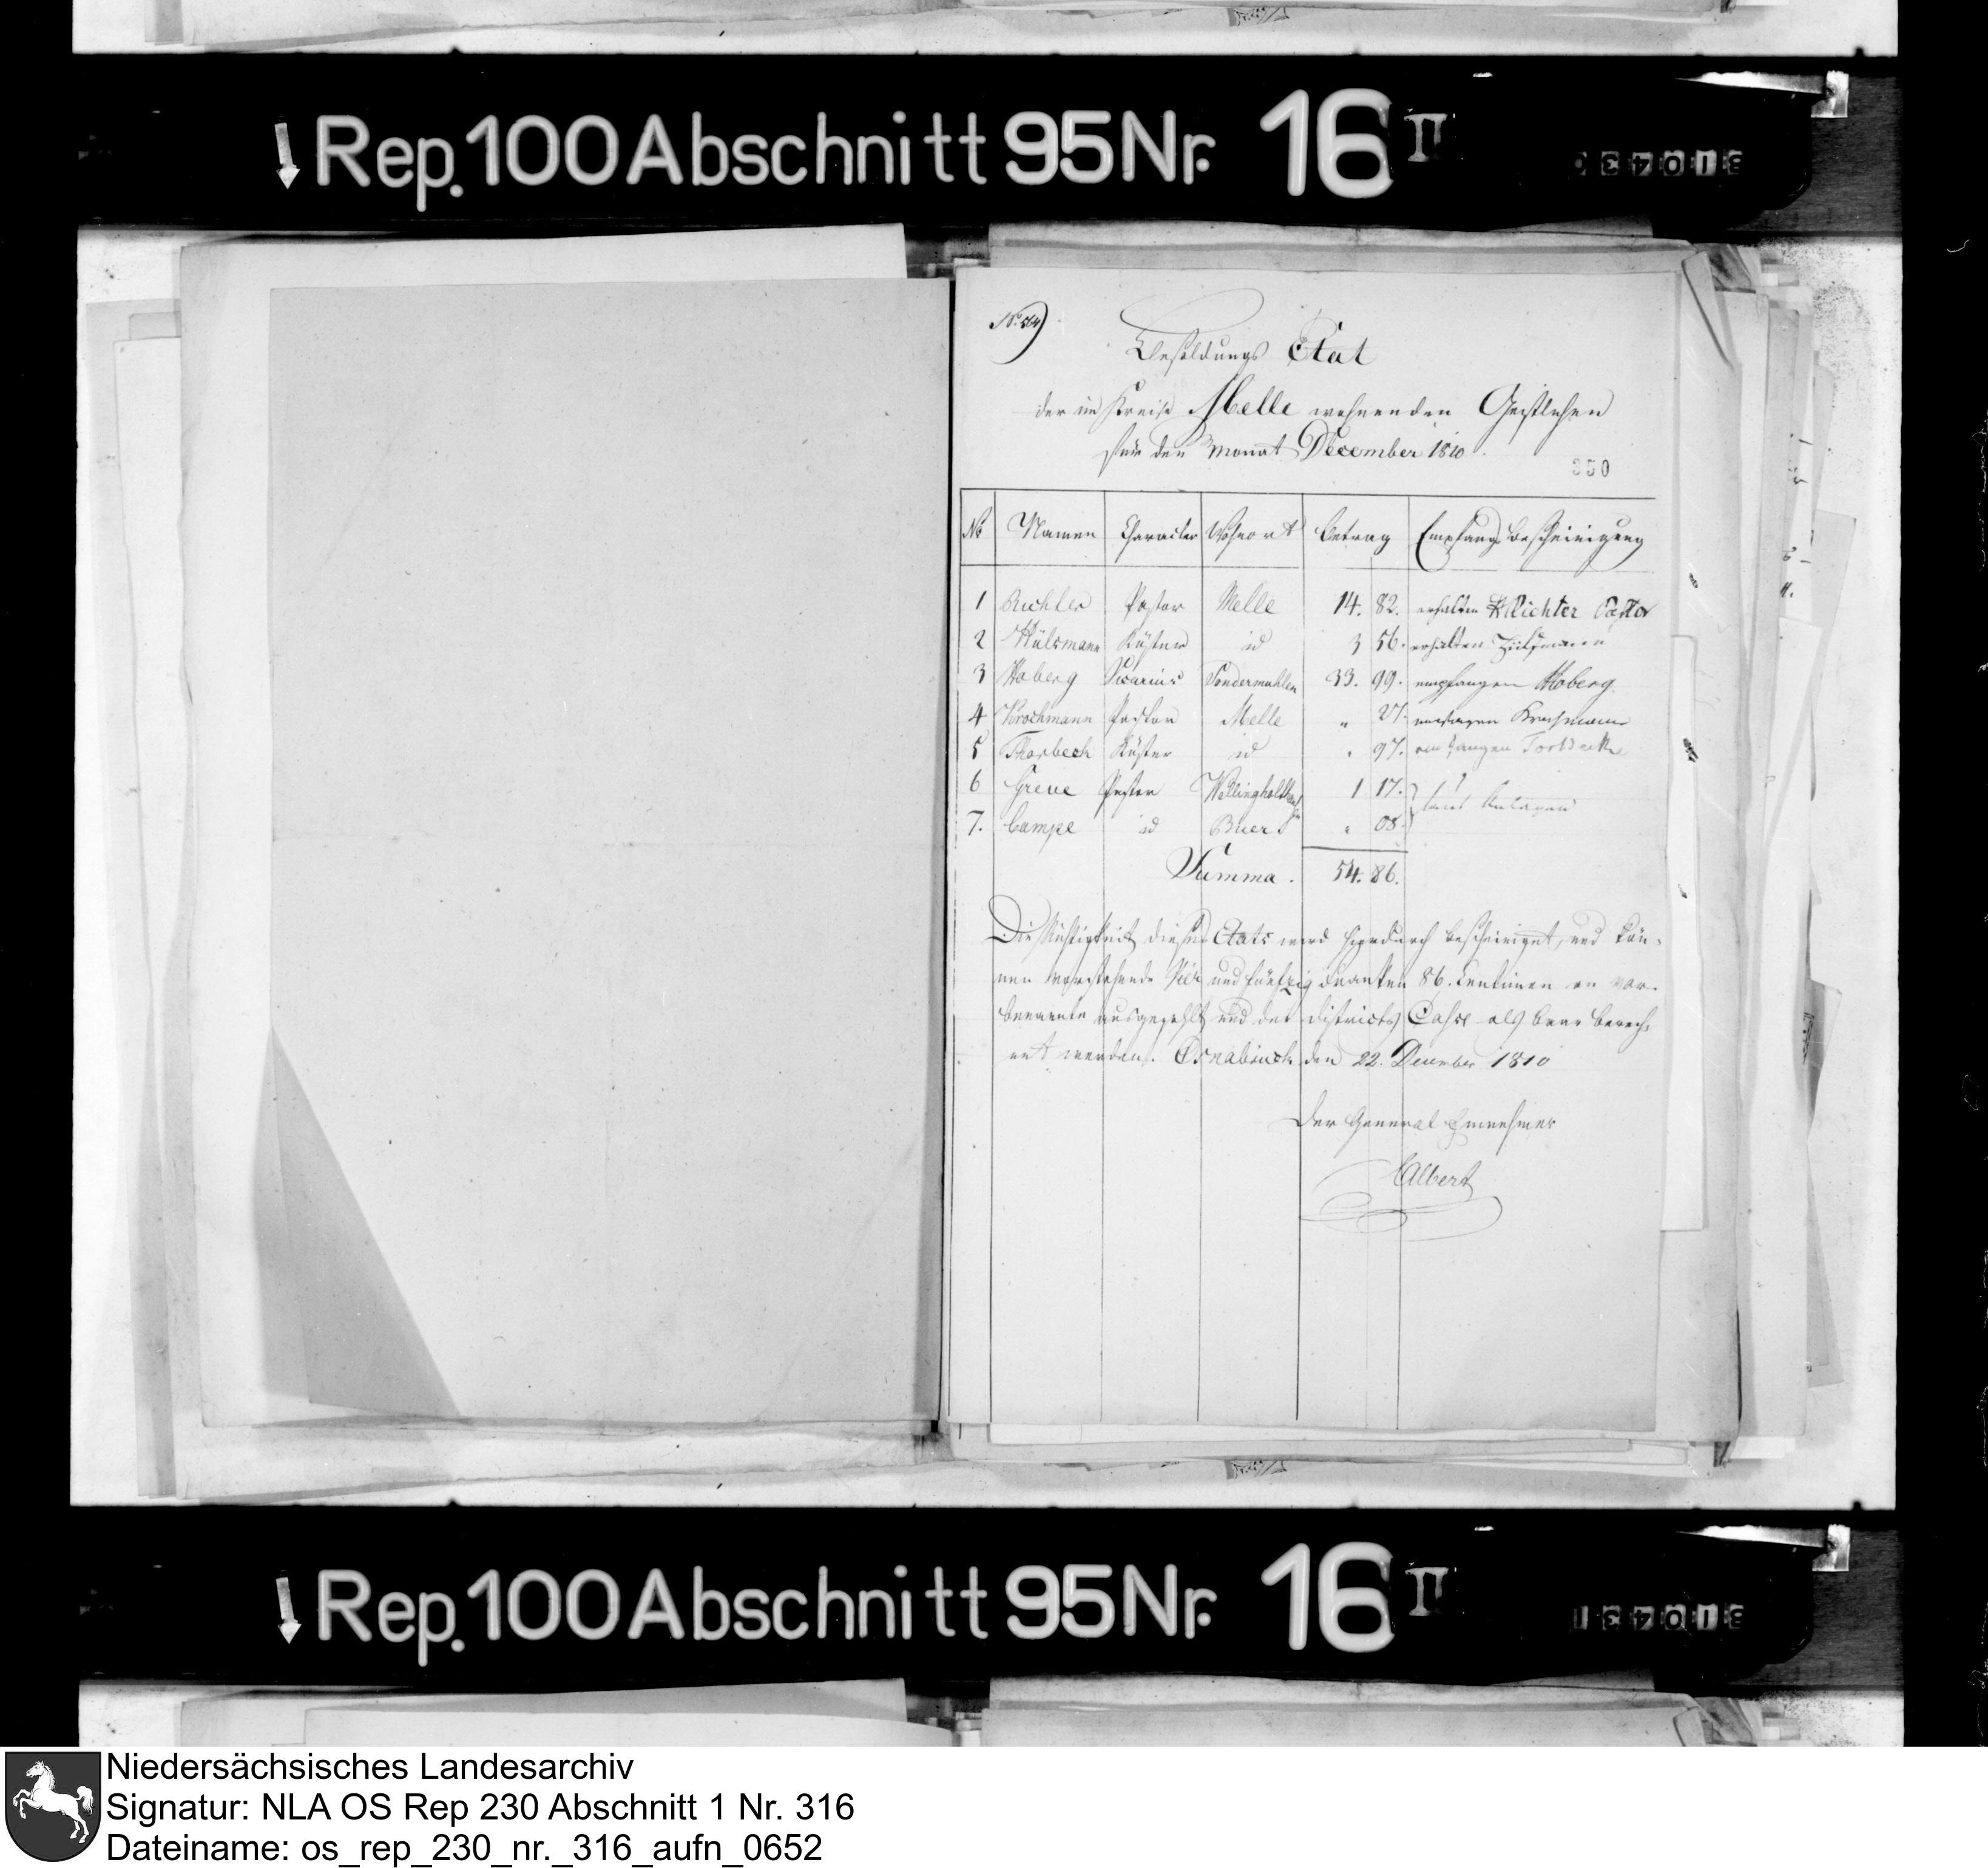 Rep. 100 Abschnitt 95 Nr. 16 II
Besoldungs Etat
der im Kreise Melle wohnenden Geistlichen
für den Monat December 1810.
350
No Namen Character Wohnort Betrag Empfangs Bescheinigung
1 Richter Pastor Melle 14. 82. erhalten Richter Pastor
2 Hülsmann Küster id 3 56. erhalten Hülsmann
3 Hoberg Vicarius Sondermühlen 33. 99. empfangen Hoberg
4 Krochmann Pastor Melle " 27. empfangen Krochmann
5 Thorbeck Küster id " 97. empfangen Torbecke
6 Greve Pastor Wellingholthausen 1 17. laut Anlagen
7. Campe id Buer " 08.
Summa. 54. 86.
Die Richtigkeit dieses Etats wird hierdurch bescheiniget, und kön-
nen vorstehende Vier und fünfzig Franken 86. Centimen an vor-
benannte ausgezahlt und der Districts Casse als baar berech-
net werden. Osnabrück den 22. December 1810
Der General Einnehmer
Albert
Rep. 100 Abschnitt 95 Nr. 16 II
Niedersächsisches Landesarchiv
Signatur: NLA OS Rep 230 Abschnitt 1 Nr. 316
Dateiname: os_rep_230_nr._316_aufn_0652